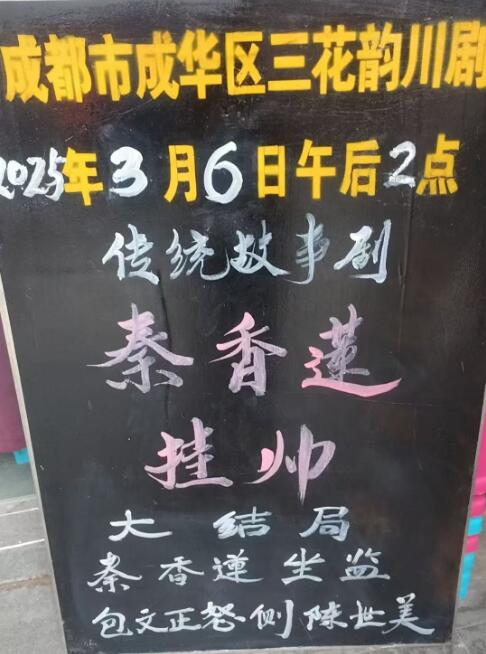 成都市成华区三花韵川剧
2025年3月6日午后2点
传统故事剧
秦香莲
挂帅
大结局
秦香蓮坐监
包文正怒侧陈世美